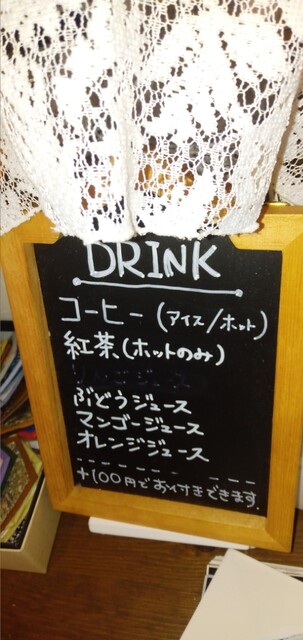 DRINK
コーヒー (アイス/ホット)
紅茶 (ホットのみ)
りんごジュース
ぶどうジュース
マンゴージュース
オレンジジュース
+100円でお付きできます.